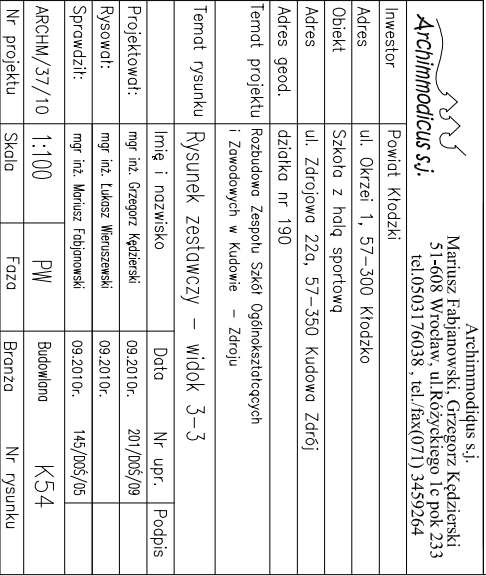 Archimmodicus s.j.
Archimmodicus s.j.
Mariusz Fabjanowski, Grzegorz Kędzierski
51-608 Wrocław, ul.Różyckiego 1c pok 233
tel.0503176038 , tel./fax(071) 3459264
Inwestor Powiat Kłodzki
Adres ul. Okrzei 1, 57-300 Kłodzko
Obiekt Szkoła z halą sportową
Adres ul. Zdrojowa 22a, 57-350 Kudowa Zdrój
Adres geod. działka nr 190
Temat projektu Rozbudowa Zespołu Szkół Ogólnokształcących
i Zawodowych w Kudowie - Zdroju
Temat rysunku Rysunek zestawczy - widok 3-3
Imię i nazwisko Data Nr upr. Podpis
Projektował: mgr inż. Grzegorz Kędzierski 09.2010r. 201/DOŚ/09
Rysował: mgr inż. Łukasz Wieruszewski 09.2010r.
Sprawdził: mgr inż. Mariusz Fabjanowski 09.2010r. 145/DOŚ/05
ARCHM/37/10 1:100 PW Budowlana K54
Nr projektu Skala Faza Branża Nr rysunku